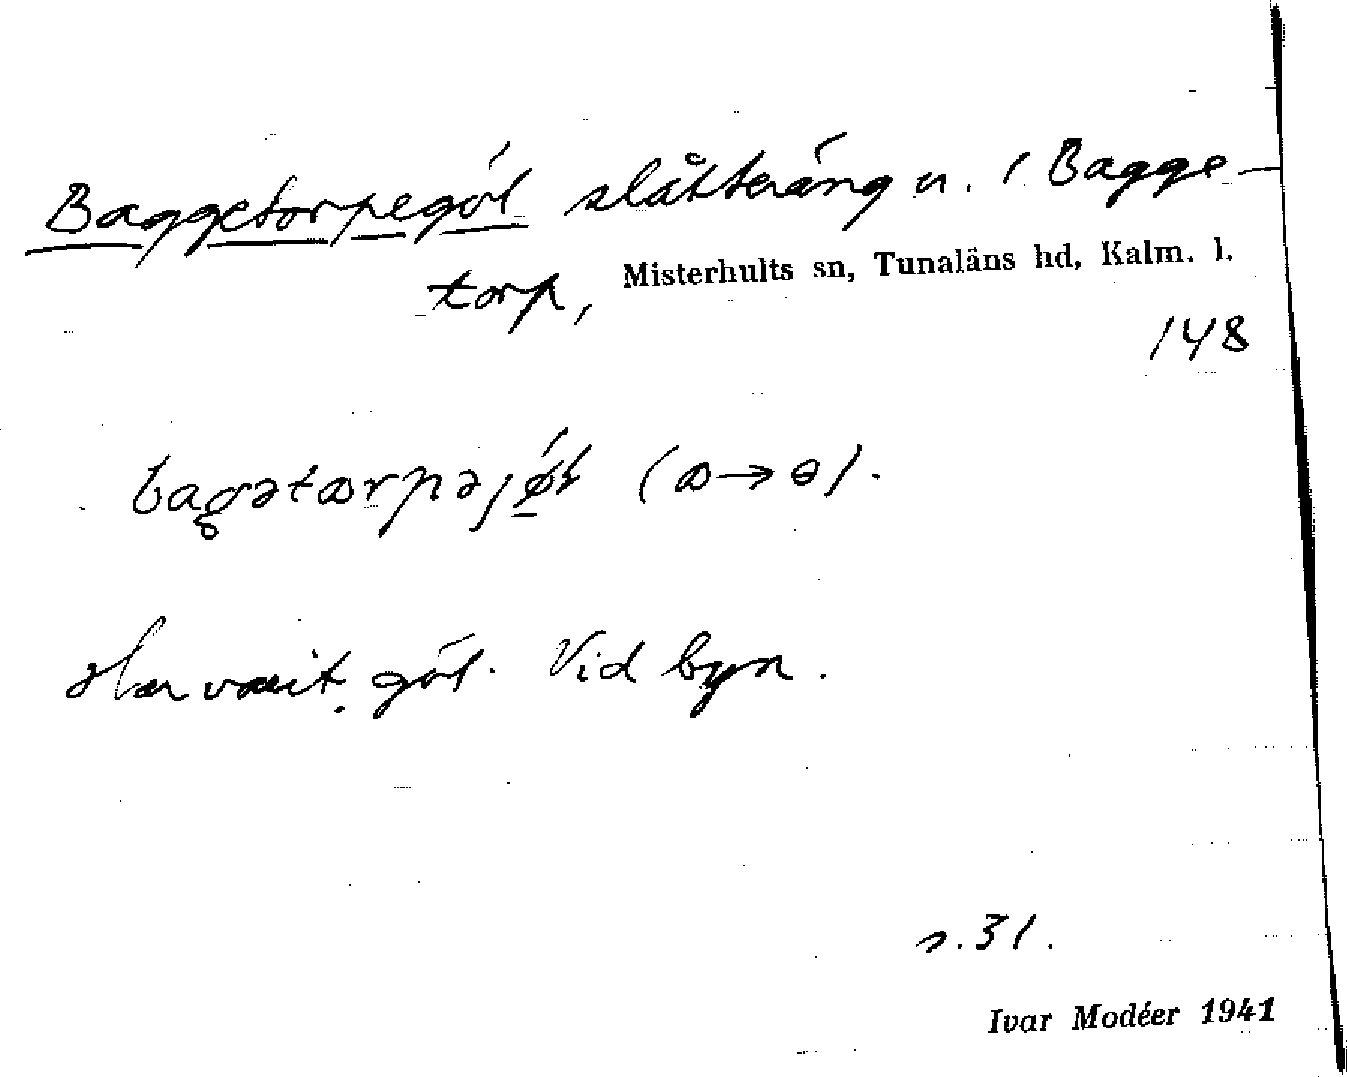 Baggetorpegöl slåtteräng u. i Bagge-
torp, Misterhults sn, Tunaläns hd, Kalm. l.
148
(a→ə).
Har varit göl. Vid byn.
s. 31.
Ivar Modéer 1941